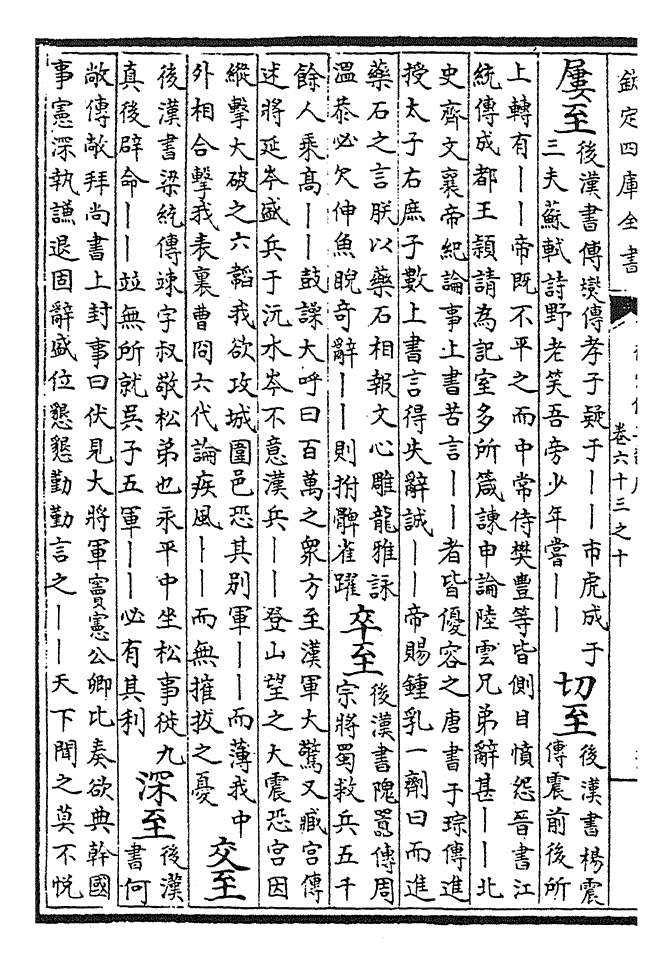 欽定四庫全書
卷六十三之十
屢至
後漢書傅爕傳孝子疑于｜｜市虎成于
三夫蘇軾詩野老笑吾旁少年嘗｜｜
切至
後漢書楊震
傳震前後所
上轉有｜｜帝既不平之而中常侍樊豊等皆側目憤怨晉書江
統傳成都王頴請為記室多所箴諫申論陸雲兄弟辭甚｜｜北
史齊文襄帝紀論事上書苦言｜｜者皆優容之唐書于琮傳進
授太子右庶子數上書言得失辭誠｜｜帝賜鍾乳一劑曰而進
藥石之言朕以藥石相報文心雕龍雅詠
溫恭必欠伸魚睨奇辭｜｜則拊髀雀躍
卒至
後漢書隗囂傳周
宗將蜀救兵五千
餘人乘髙｜｜鼓譟大呼曰百萬之衆方至漢軍大驚又臧宫傳
述將延岑盛兵于沅水岑不意漢兵｜｜登山望之大震恐宫因
縱擊大破之六韜我欲攻城圍邑恐其别軍｜｜而薄我中
外相合擊我表裏曹冏六代論疾風｜｜而無摧拔之憂
交至
後漢書梁統傳竦字叔敬松弟也永平中坐松事徙九
真後辟命｜｜竝無所就吳子五軍｜｜必有其利
深至
後漢
書何
敞傳敞拜尚書上封事曰伏見大將軍竇憲公卿比奏欲典幹國
事憲深執謙退固辭盛位懇懇勤勤言之｜｜天下聞之莫不悦